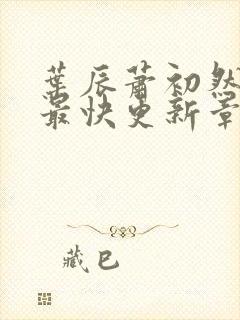 葉辰蕭初然
最快更新章
藏巴